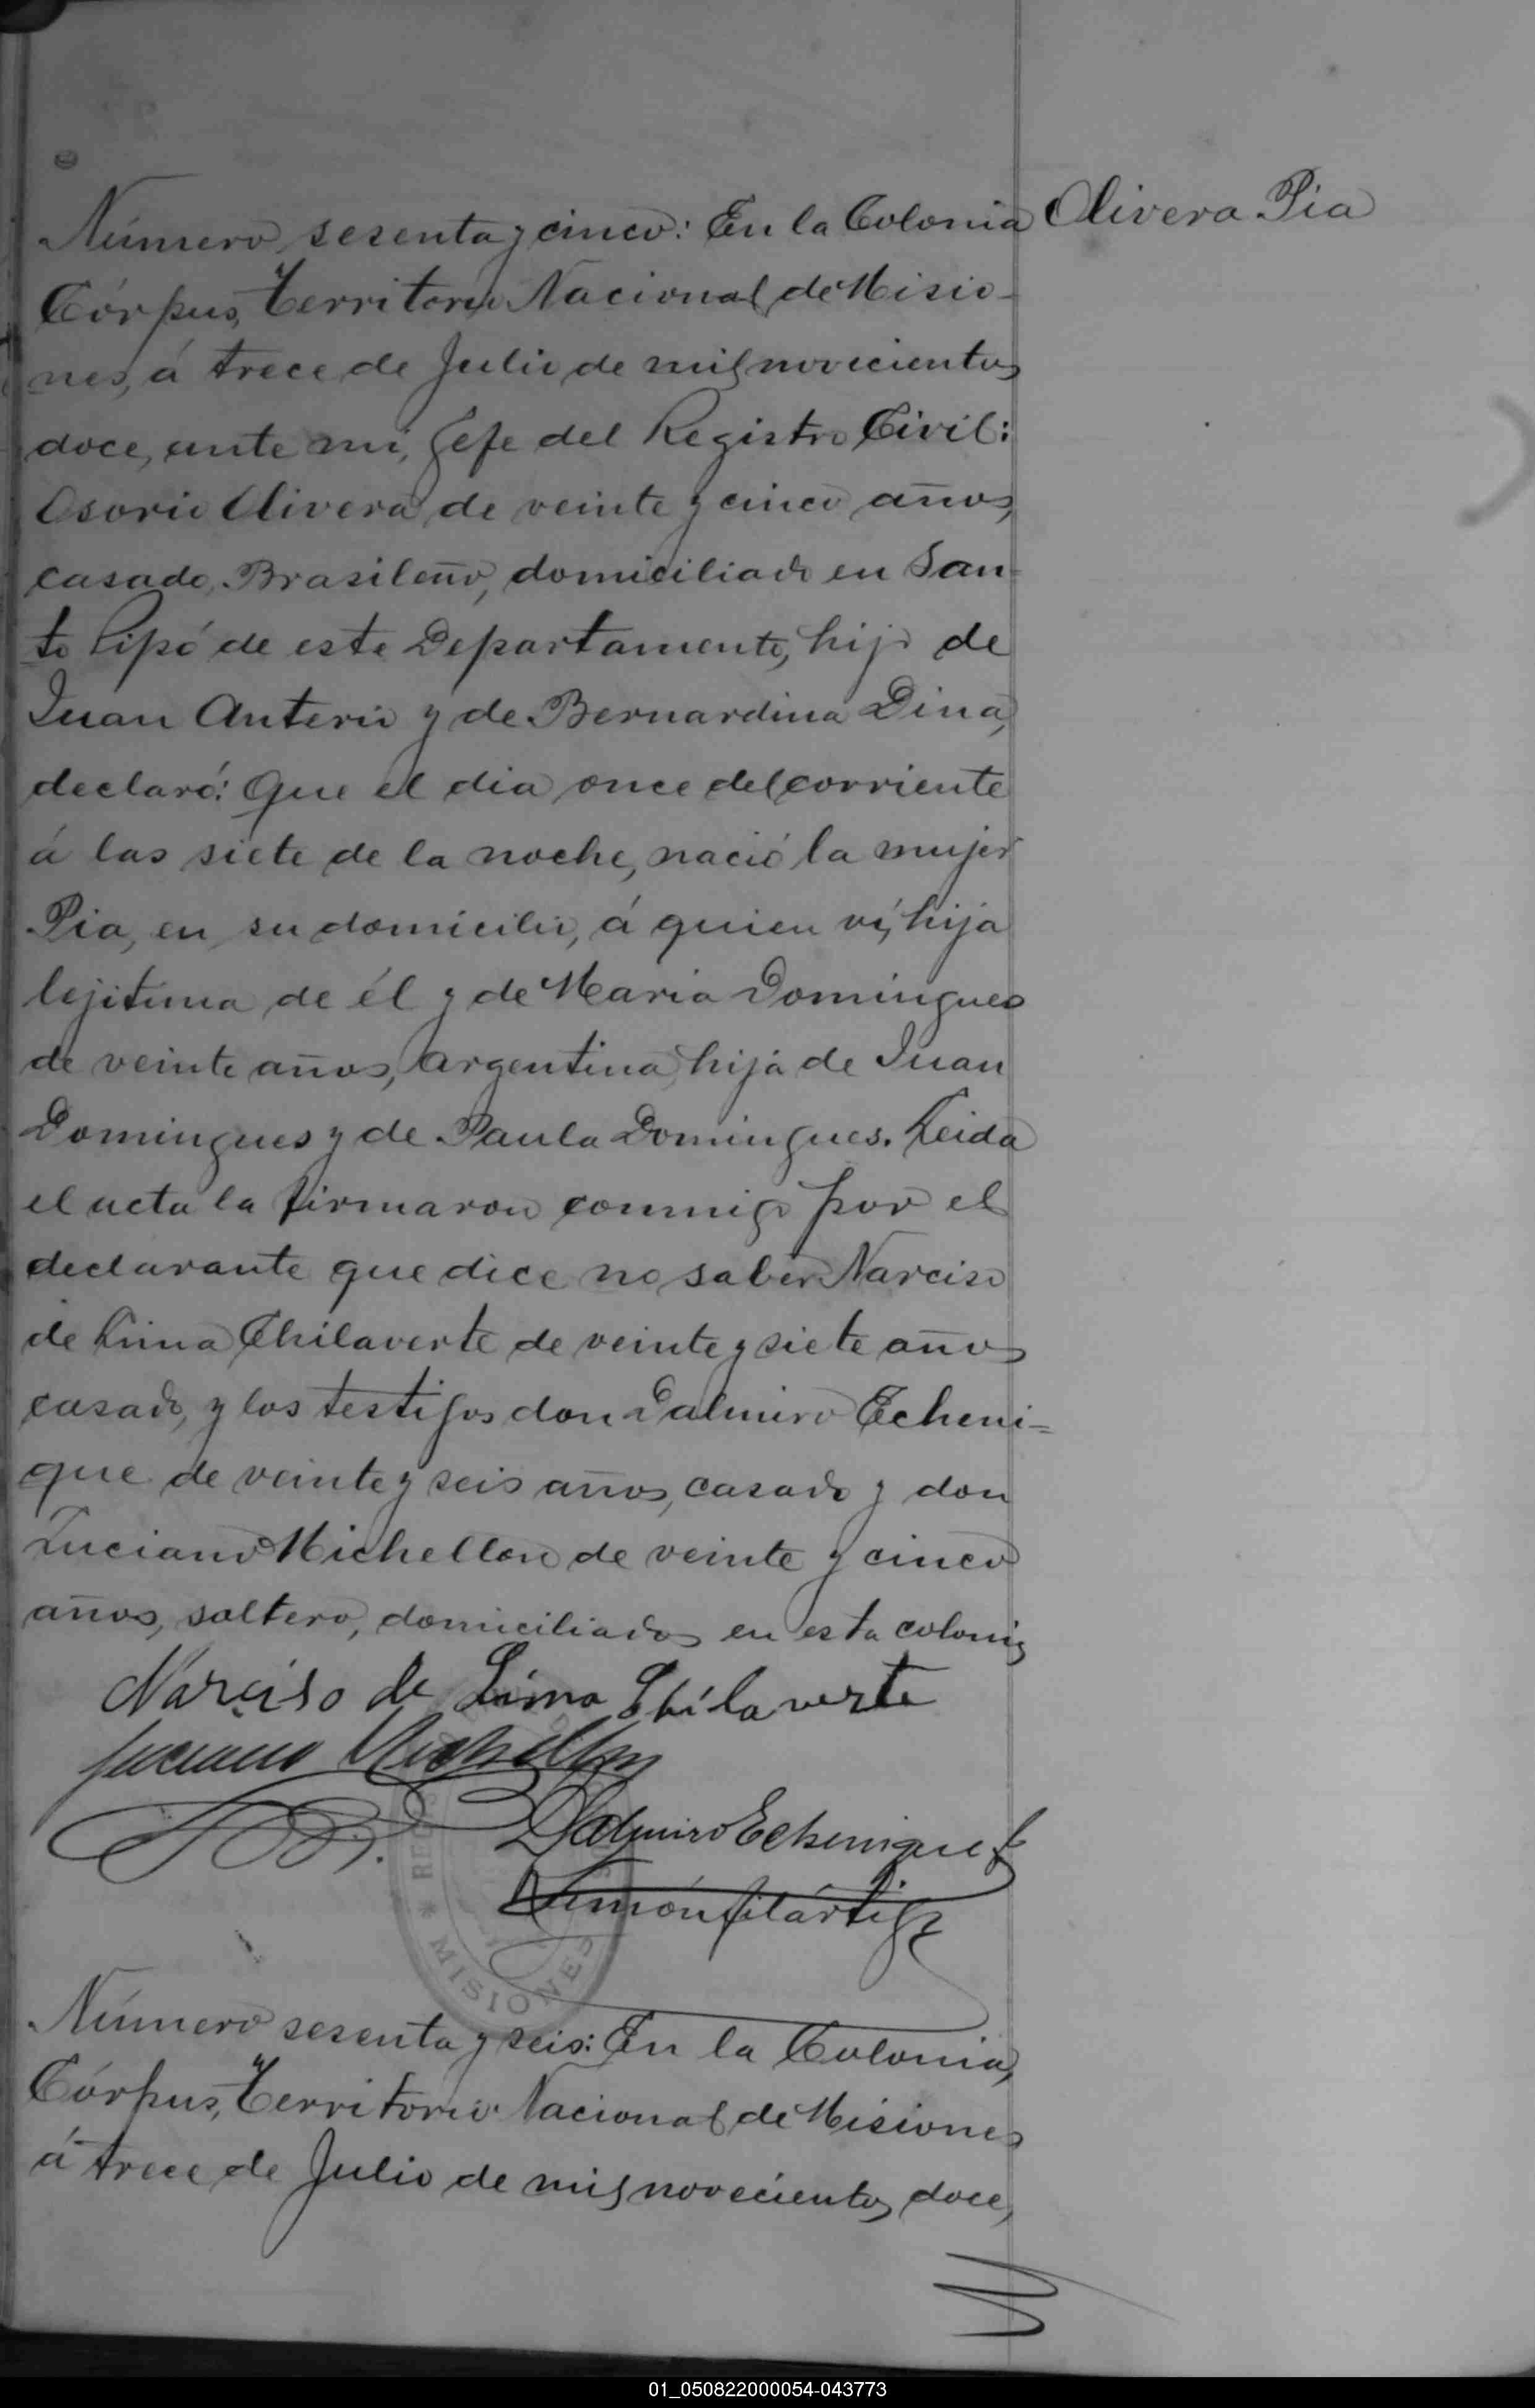 Olivera Pia
Número sesenta y cinco: En la Colonia
Córpus, Territorio Nacional de Misio-
nes, á trece de Julio de mil novecientos
doce, ante mi, Jefe del Registro Civil:
Osorio Olivera de veinte y cinco años,
casado, Brasileño, domiciliado en San-
to Pipó de este Departamento, hijo de
Juan Anterio y de Bernardina Dina,
declaró: Que el dia once del corriente
á las siete de la noche, nació la mujer
Pia, en su domicilio, á quien ví, hija
lejitima de él y de Maria Domingues
de veinte años, argentina, hija de Juan
Domingues y de Paula Domingues. Leida
el acta la firmaron conmigo por el
declarante que dice no saber Narciso
de Lima Chilaverte de veinte y siete años
casado, y los testigos don Dalmiro Echeni=
que de veinte y seis años, casado y don
Luciano Michellon de veinte y cinco
años, soltero, domiciliados en esta colonia
Narciso de Lima Chilaverte
Luciano Michellon
Dalmiro Echenique
Simón Filártiga
MISIONES
Número sesenta y seis: En la Colonia,
Córpus, Territorio Nacional de Misiones
á trece de Julio de mil novecientos doce,
01_050822000054-043773